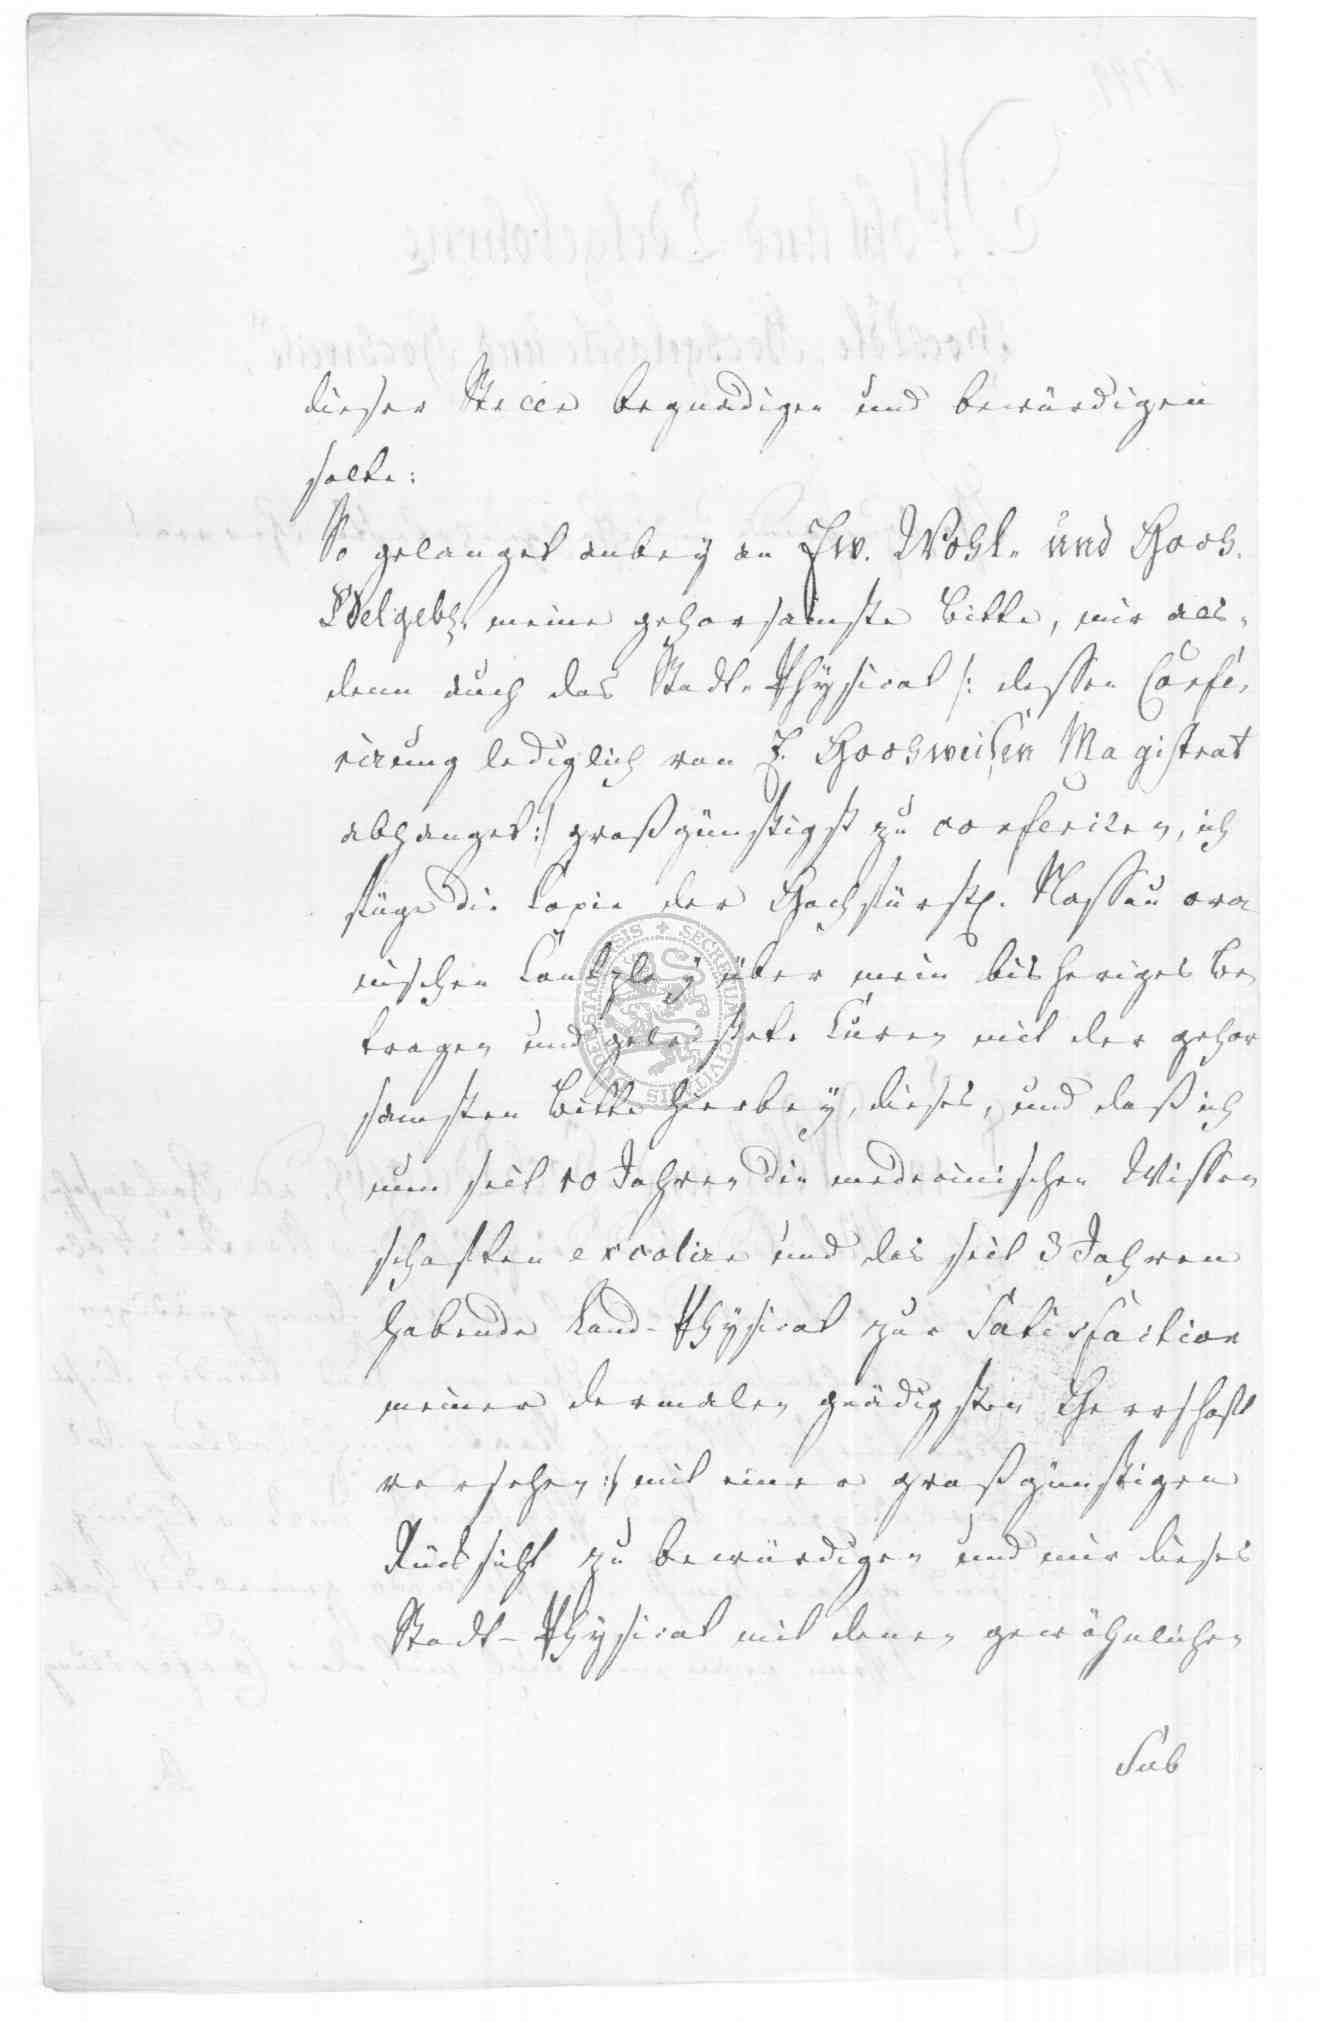 dieser Stelle begnadigen und bewürdigen
solte:
So gelanget anbey an Ew. Wohl- und Hoch-
Edelgebh. meine gehorsamste Bitte, mir als-
denn auch das Stadt-Physicat /: dessen Confe-
rirung lediglich von E. Hochweisen Magistrat
abhanget :/ großgünstigst zu conferiren, ich
füge die Copie der Hochfürstl. Nassau ora
nischen Cantzley über mein bisheriges Be-
tragen und geleistete Curen mit der gehor
samsten Bitte hierbey, dieses, und daß ich
nun seit 10 Jahren die medicinischen Wissen
schaften excolire und das seit 3 Jahren
habende Land-Physicat zur Satisfaction
meiner dermalen gnädigsten Herrschaft
versehen :/ mit einer großgünstigen
Rücksicht zu bewürdigen und mir dieses
Stadt-Physicat mit denen gewöhnlichen
Sub